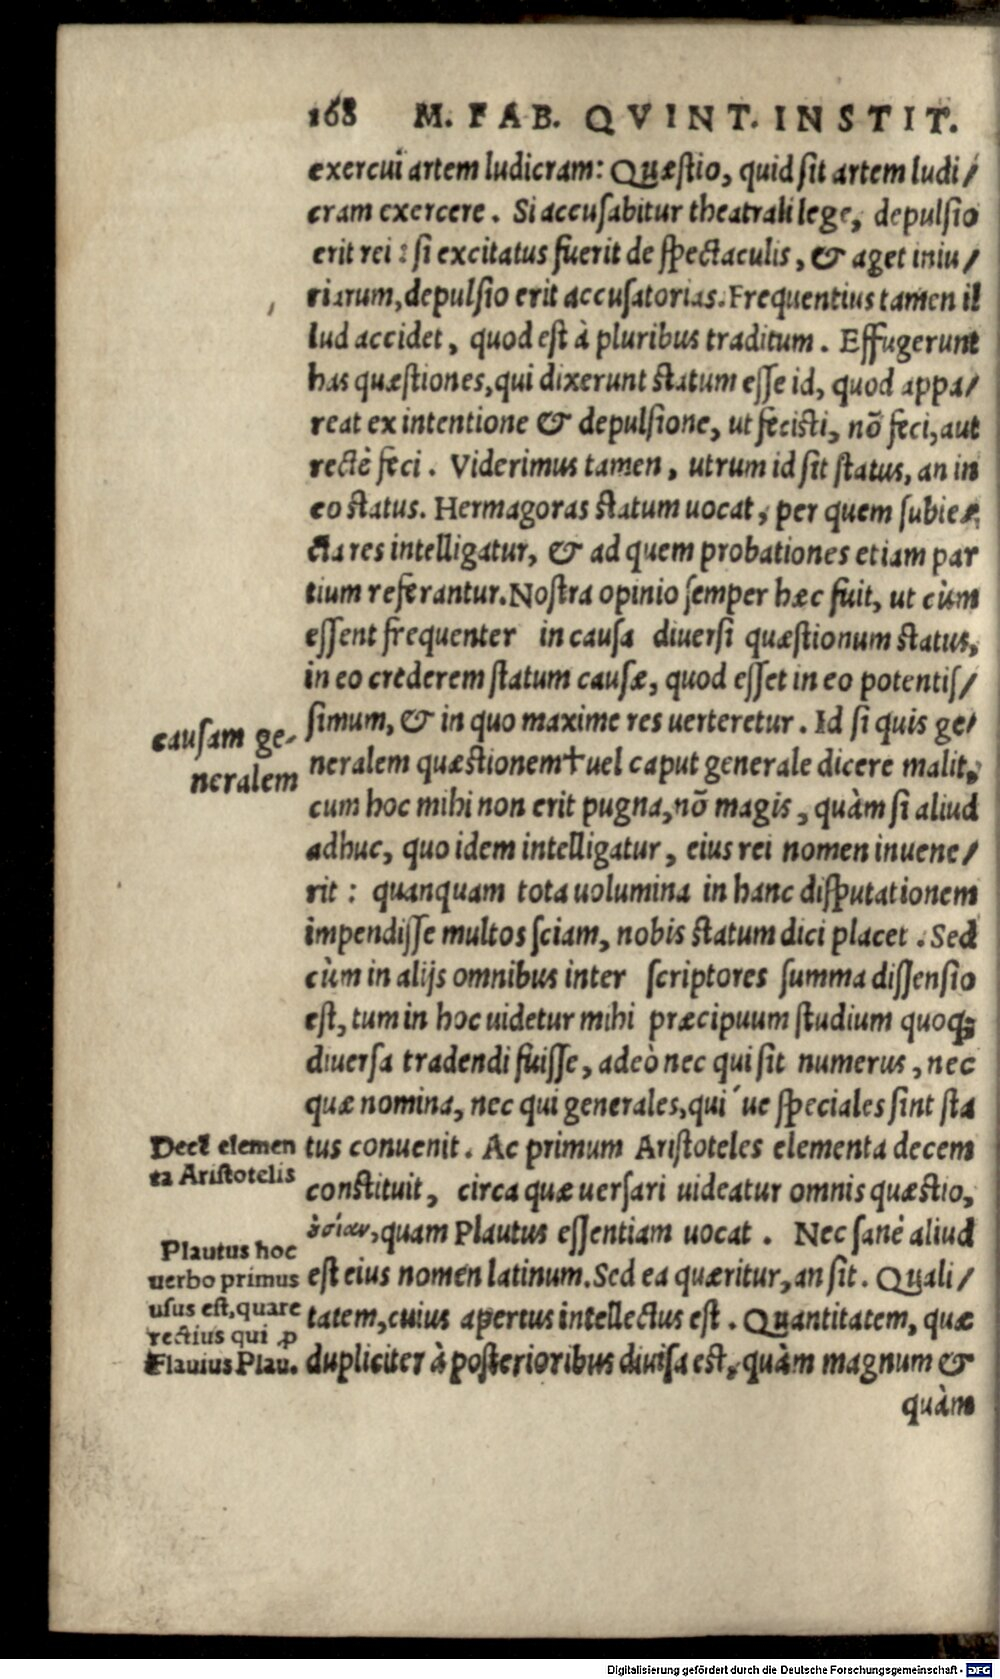 168 M. FAB. QVINT. INSTIT.
exercui artem ludicram: Quæstio, quid sit artem ludi/
cram exercere. Si accusabitur theatrali lege, depulsio
erit rei: si excitatus fuerit de spectaculis, & aget iniu/
riarum, depulsio erit accusatorias. Frequentius tamen il
lud accidet, quod est à pluribus traditum. Effugerunt
has quæstiones, qui dixerunt statum esse id, quod appa/
reat ex intentione & depulsione, ut fecisti, nõ feci, aut
rectè feci. Viderimus tamen, utrum id sit status, an in
eo status. Hermagoras statum uocat, per quem subie
cta res intelligatur, & ad quem probationes etiam par
tium referantur. Nostra opinio semper hæc fuit, ut cùm
essent frequenter in causa diuersi quæstionum status,
in eo crederem statum causæ, quod esset in eo potentis/
simum, & in quo maxime res uerteretur. Id si quis ge/
causam ge-
neralem
neralem quæstionem† uel caput generale dicere malit,
cum hoc mihi non erit pugna, nõ magis, quàm si aliud
adhuc, quo idem intelligatur, eius rei nomen inuene/
rit: quanquam tota uolumina in hanc disputationem
impendisse multos sciam, nobis statum dici placet. Sed
cùm in alijs omnibus inter scriptores summa dissensio
est, tum in hoc uidetur mihi præcipuum studium quoq;
diuersa tradendi fuisse, adeò nec qui sit numerus, nec
quæ nomina, nec qui generales, qui´ue speciales sint sta
Decē elemen
ta Aristotelis
tus conuenit. Ac primum Aristoteles elementa decem
constituit, circa quæ uersari uideatur omnis quæstio,
ὀσίαν, quam Plautus essentiam uocat. Nec sanè aliud
Plautus hoc
uerbo primus
usus est, quare
rectius qui ꝓ
Flauius Plau.
est eius nomen latinum. Sed ea quæritur, an sit. Quali/
tatem, cuius apertus intellectus est. Quantitatem, quæ
dupliciter à posterioribus diuisa est, quàm magnum &
quàm
Digitalisierung gefördert durch die Deutsche Forschungsgemeinschaft - DFG